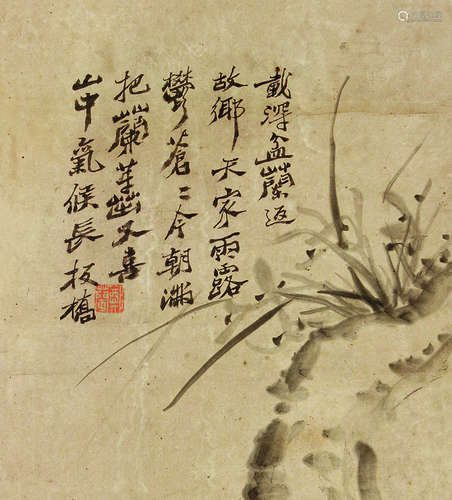 載深盆蘭返
故鄉天家雨露
鬱蒼〻今朝滿
把巖華茁又喜
山中氣候長板橋